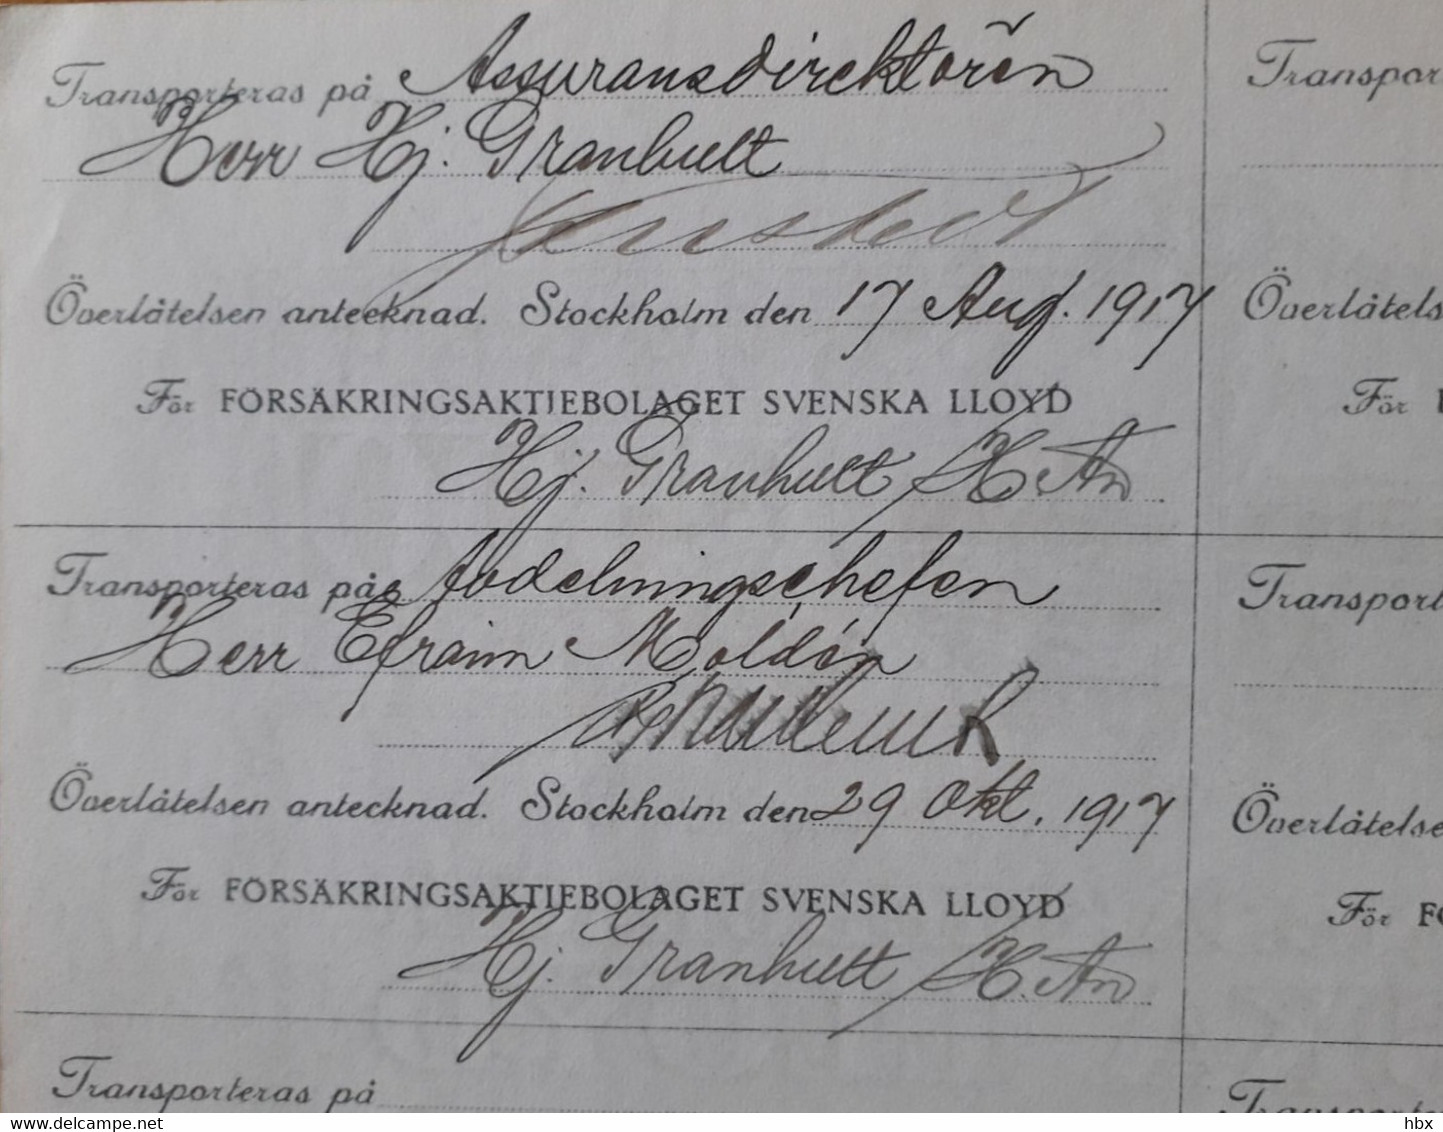 Transporteras på Assuransdirektören
Herr Hj. Granhult
Överlåtelsen antecknad. Stockholm den 17 Aug. 1917
För FÖRSÄKRINGSAKTIEBOLAGET SVENSKA LLOYD
Hj. Granhult
Transporteras på Avdelningschefen
Herr Efraim Moldén
Överlåtelsen antecknad. Stockholm den 29 Okt. 1917
För FÖRSÄKRINGSAKTIEBOLAGET SVENSKA LLOYD
Hj. Granhult
Transporteras på
Transpor
Överlåtels
För
Transport
Överlåtelse
För FÖ
Transport
delcampe.net
hbx